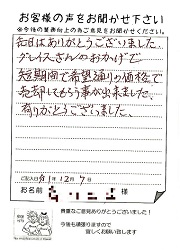 お客様の声をお聞かせ下さい
※今後の業務向上の為ご意見をお聞かせください。
先日はありがとうございました。
グレイスさんのおかげで
短期間で希望通りの価格で
売却してもらう事が出来ました。
有りがとうございました。
ご記入日 1年12月7日
お名前 様
貴重なご意見ありがとうございました!
今後も頑張りますので
宜しくお願い致します